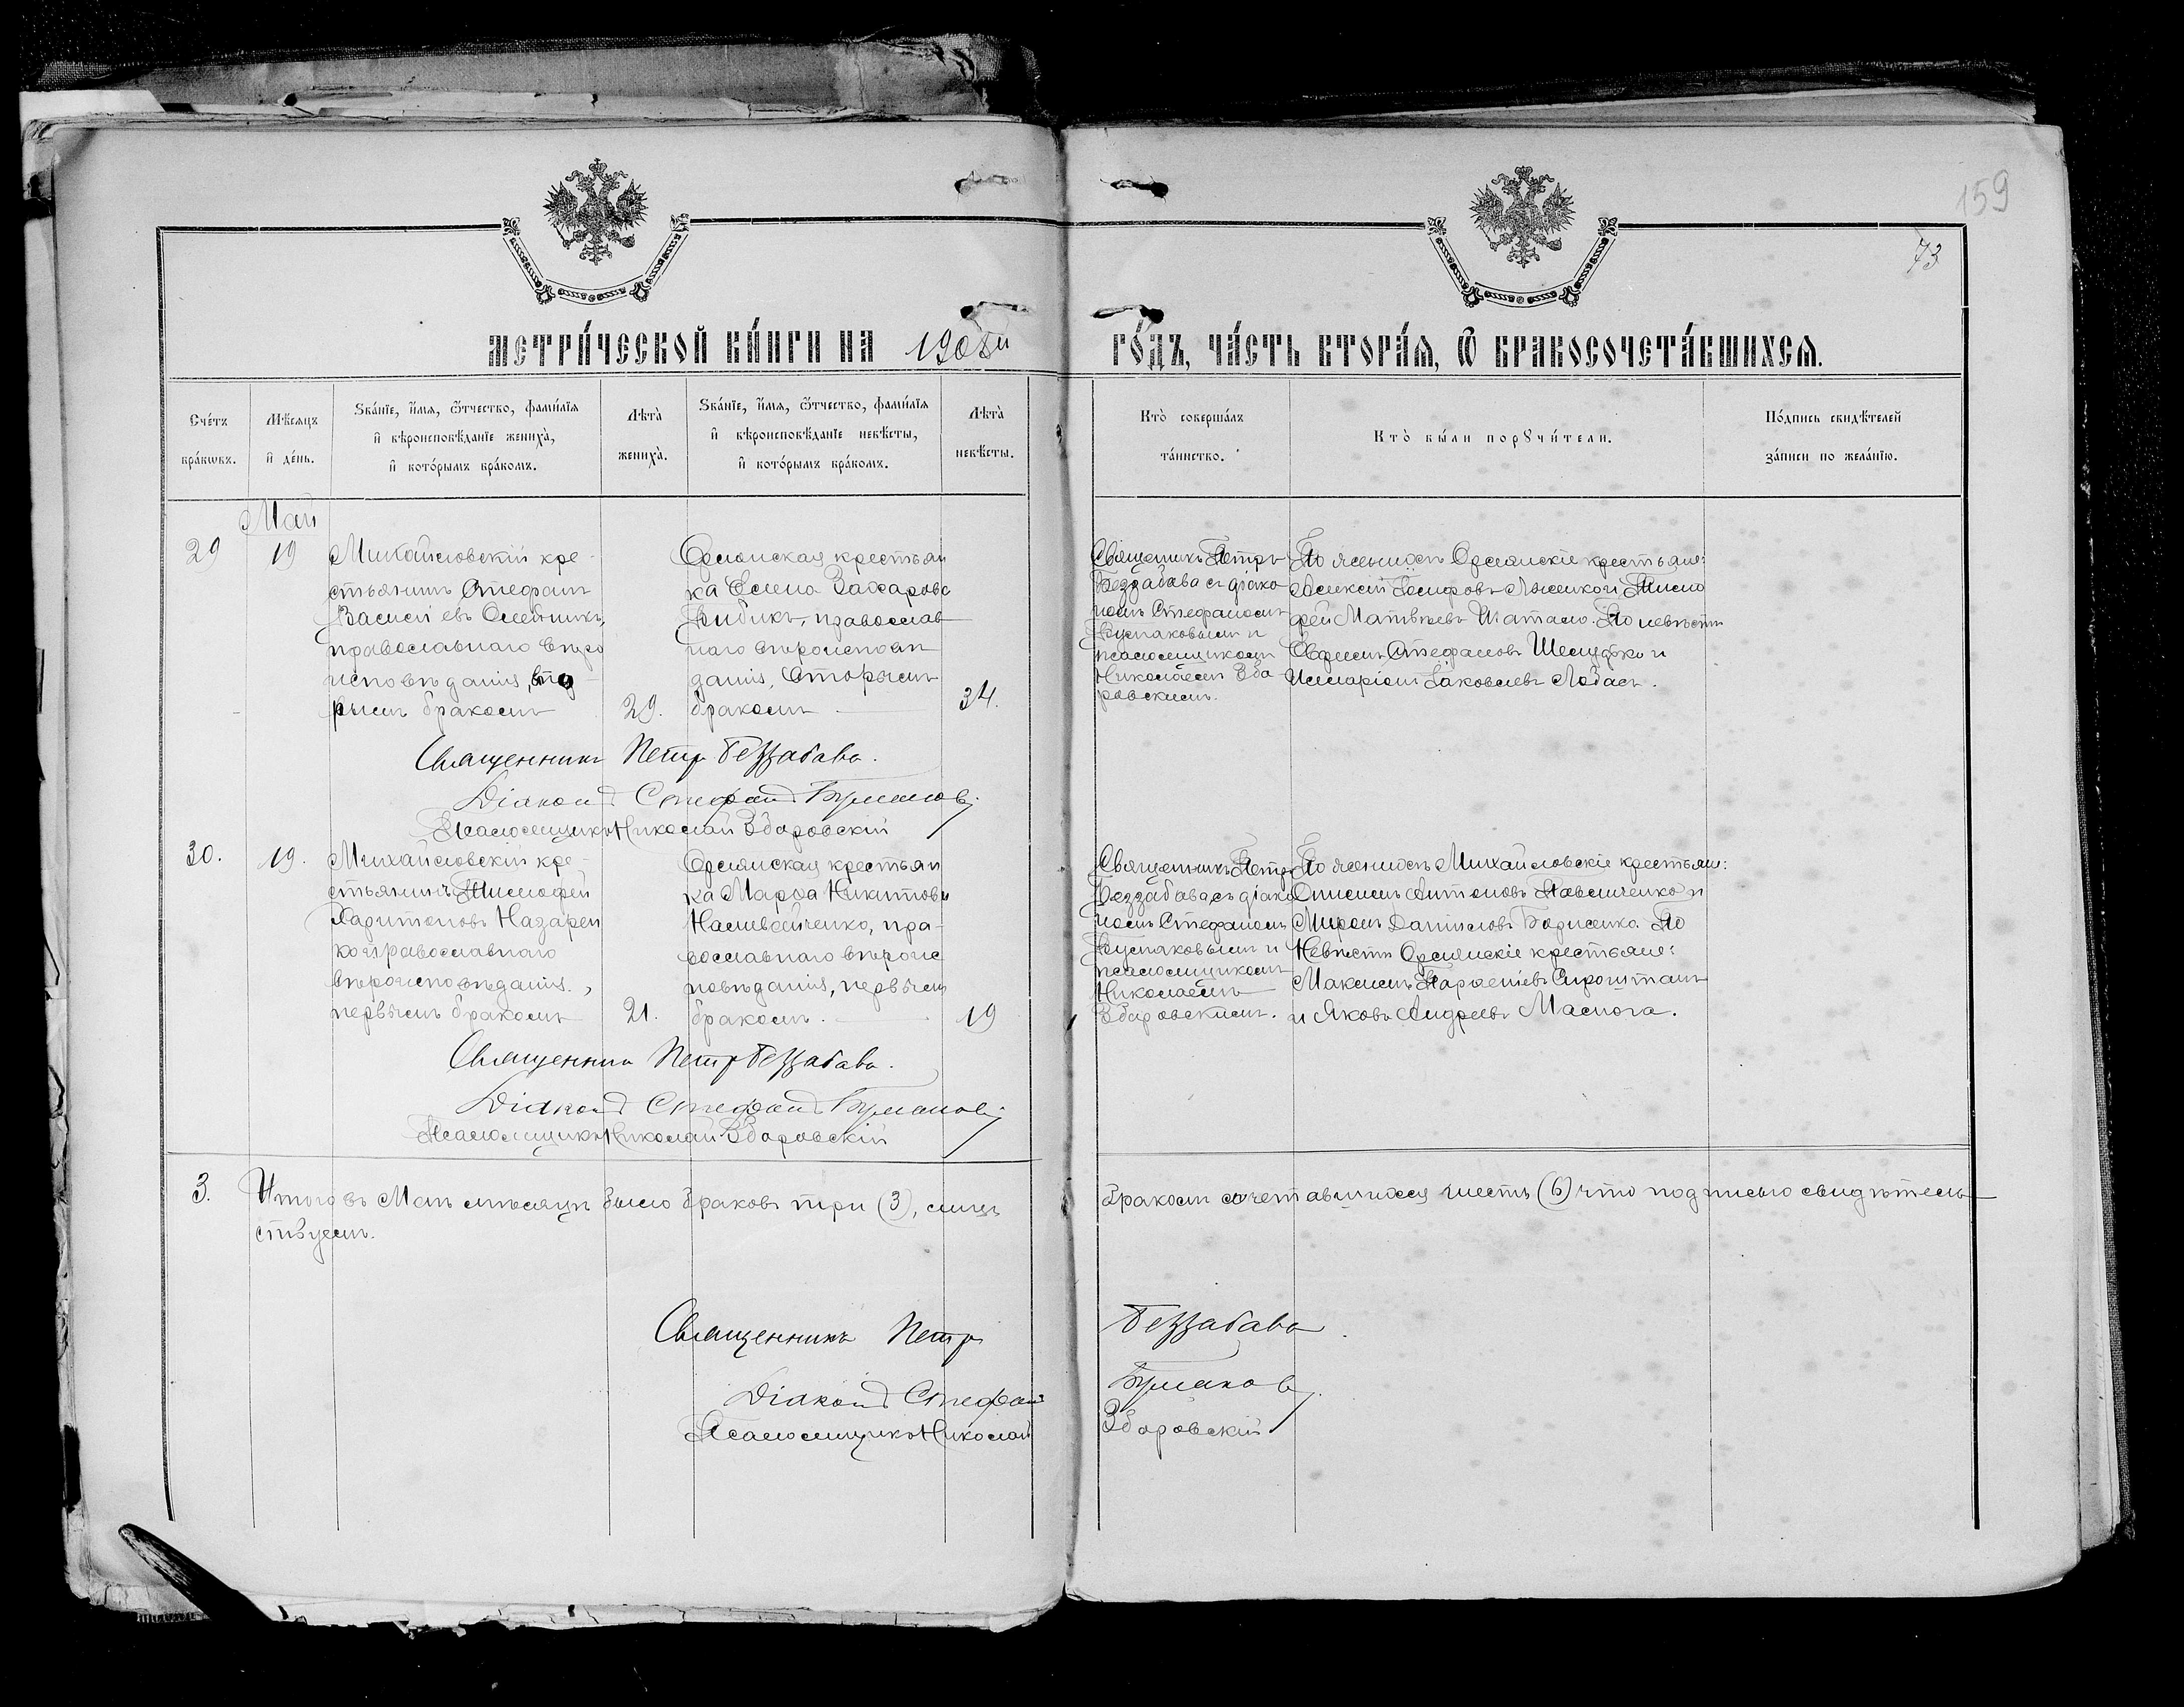 159
73
МЕТРИ́ЧЕСКОЙ КНИ́ГИ НА 1908й ГО́ДЪ, ЧА́СТЬ ВТОРА́Я, Ѿ БРАКОСОЧЕТА́ВШИХСЯ.
Сче́тъ
бра́кѡвъ.
Мѣ́сяцъ
и҆ де́нь.
Ѕва́нїе, и҆́мя, ѻ҆́тчество, фами́лїя
и҆ вѣроисповѣ́данїе жениха̀,
и҆ кото́рымъ бра́комъ.
Лѣ́та̀
жениха̀.
Ѕва́нїе, и҆́мя, ѻ҆́тчество, фами́лїя
и҆ вѣроисповѣ́данїе невѣ́сты,
и҆ кото́рымъ бра́комъ.
Лѣ́та̀
невѣ́сты.
Кто̀ соверша́лъ
та́инство.
Кто̀ бы́ли порꙋчи́тели.
По́дпись свидѣ́телей
за́писи по жела́нїю.
Май
29
19
Михайловскій кре-
стьянинъ Стефанъ
Василіевъ Олейникъ,
православнаго вѣро
исповѣданія, вто
рымъ бракомъ
29.
крестьян
ка Елена Захарова
Бибикъ, православ
наго вѣроисповѣ
данія, вторымъ
бракомъ
34.
Священникъ Петръ
Беззабава съ діако
номъ Стефаномъ
и
псаломщикомъ
Николаемъ Зба
ровскимъ.
По женихѣ крестьяне:
Алексій Іосифовъ и Тимо
фей Матвѣевъ Шатало. По невѣстѣ
Ефремъ Стефановъ Шелудько и
Илларіонъ Іаковлевъ Лобасъ.
Священникъ Петръ Беззабава.
Діаконъ Стефанъ
Псаломщикъ Николай Збаровскій
30.
19.
Михайловскій кре-
стьянинъ Тимофей
Харитоновъ Назарен
ко православнаго
вѣроисповѣданія,
первымъ бракомъ
21.
крестьян
ка Марѳа Никитова
Наливайченко, пра-
вославнаго вѣроис
повѣданія, первымъ
бракомъ.
19
Священникъ Петръ
Беззабава съ діако
номъ Стефаномъ
и
псаломщикомъ
Николаемъ
Збаровскимъ.
По женихѣ Михайловскіе крестьяне:
Антоновъ Павличенко и
Миронъ Даниловъ Борисенко. По
Невѣстѣ крестьяне:
Максимъ
и Яковъ Андреевъ Маслога.
Священникъ Петръ Беззабава.
Діаконъ Стефанъ
Псаломщикъ Николай Збаровскій
3.
Итого въ Маѣ мѣсяцѣ было браковъ три (3), лицъ бракомъ сочетавшихся шесть (6) что подписью свидѣтель
ствуемъ.
Священникъ Петръ Беззабава.
Діаконъ Стефанъ
Псаломщикъ Николай Збаровскій